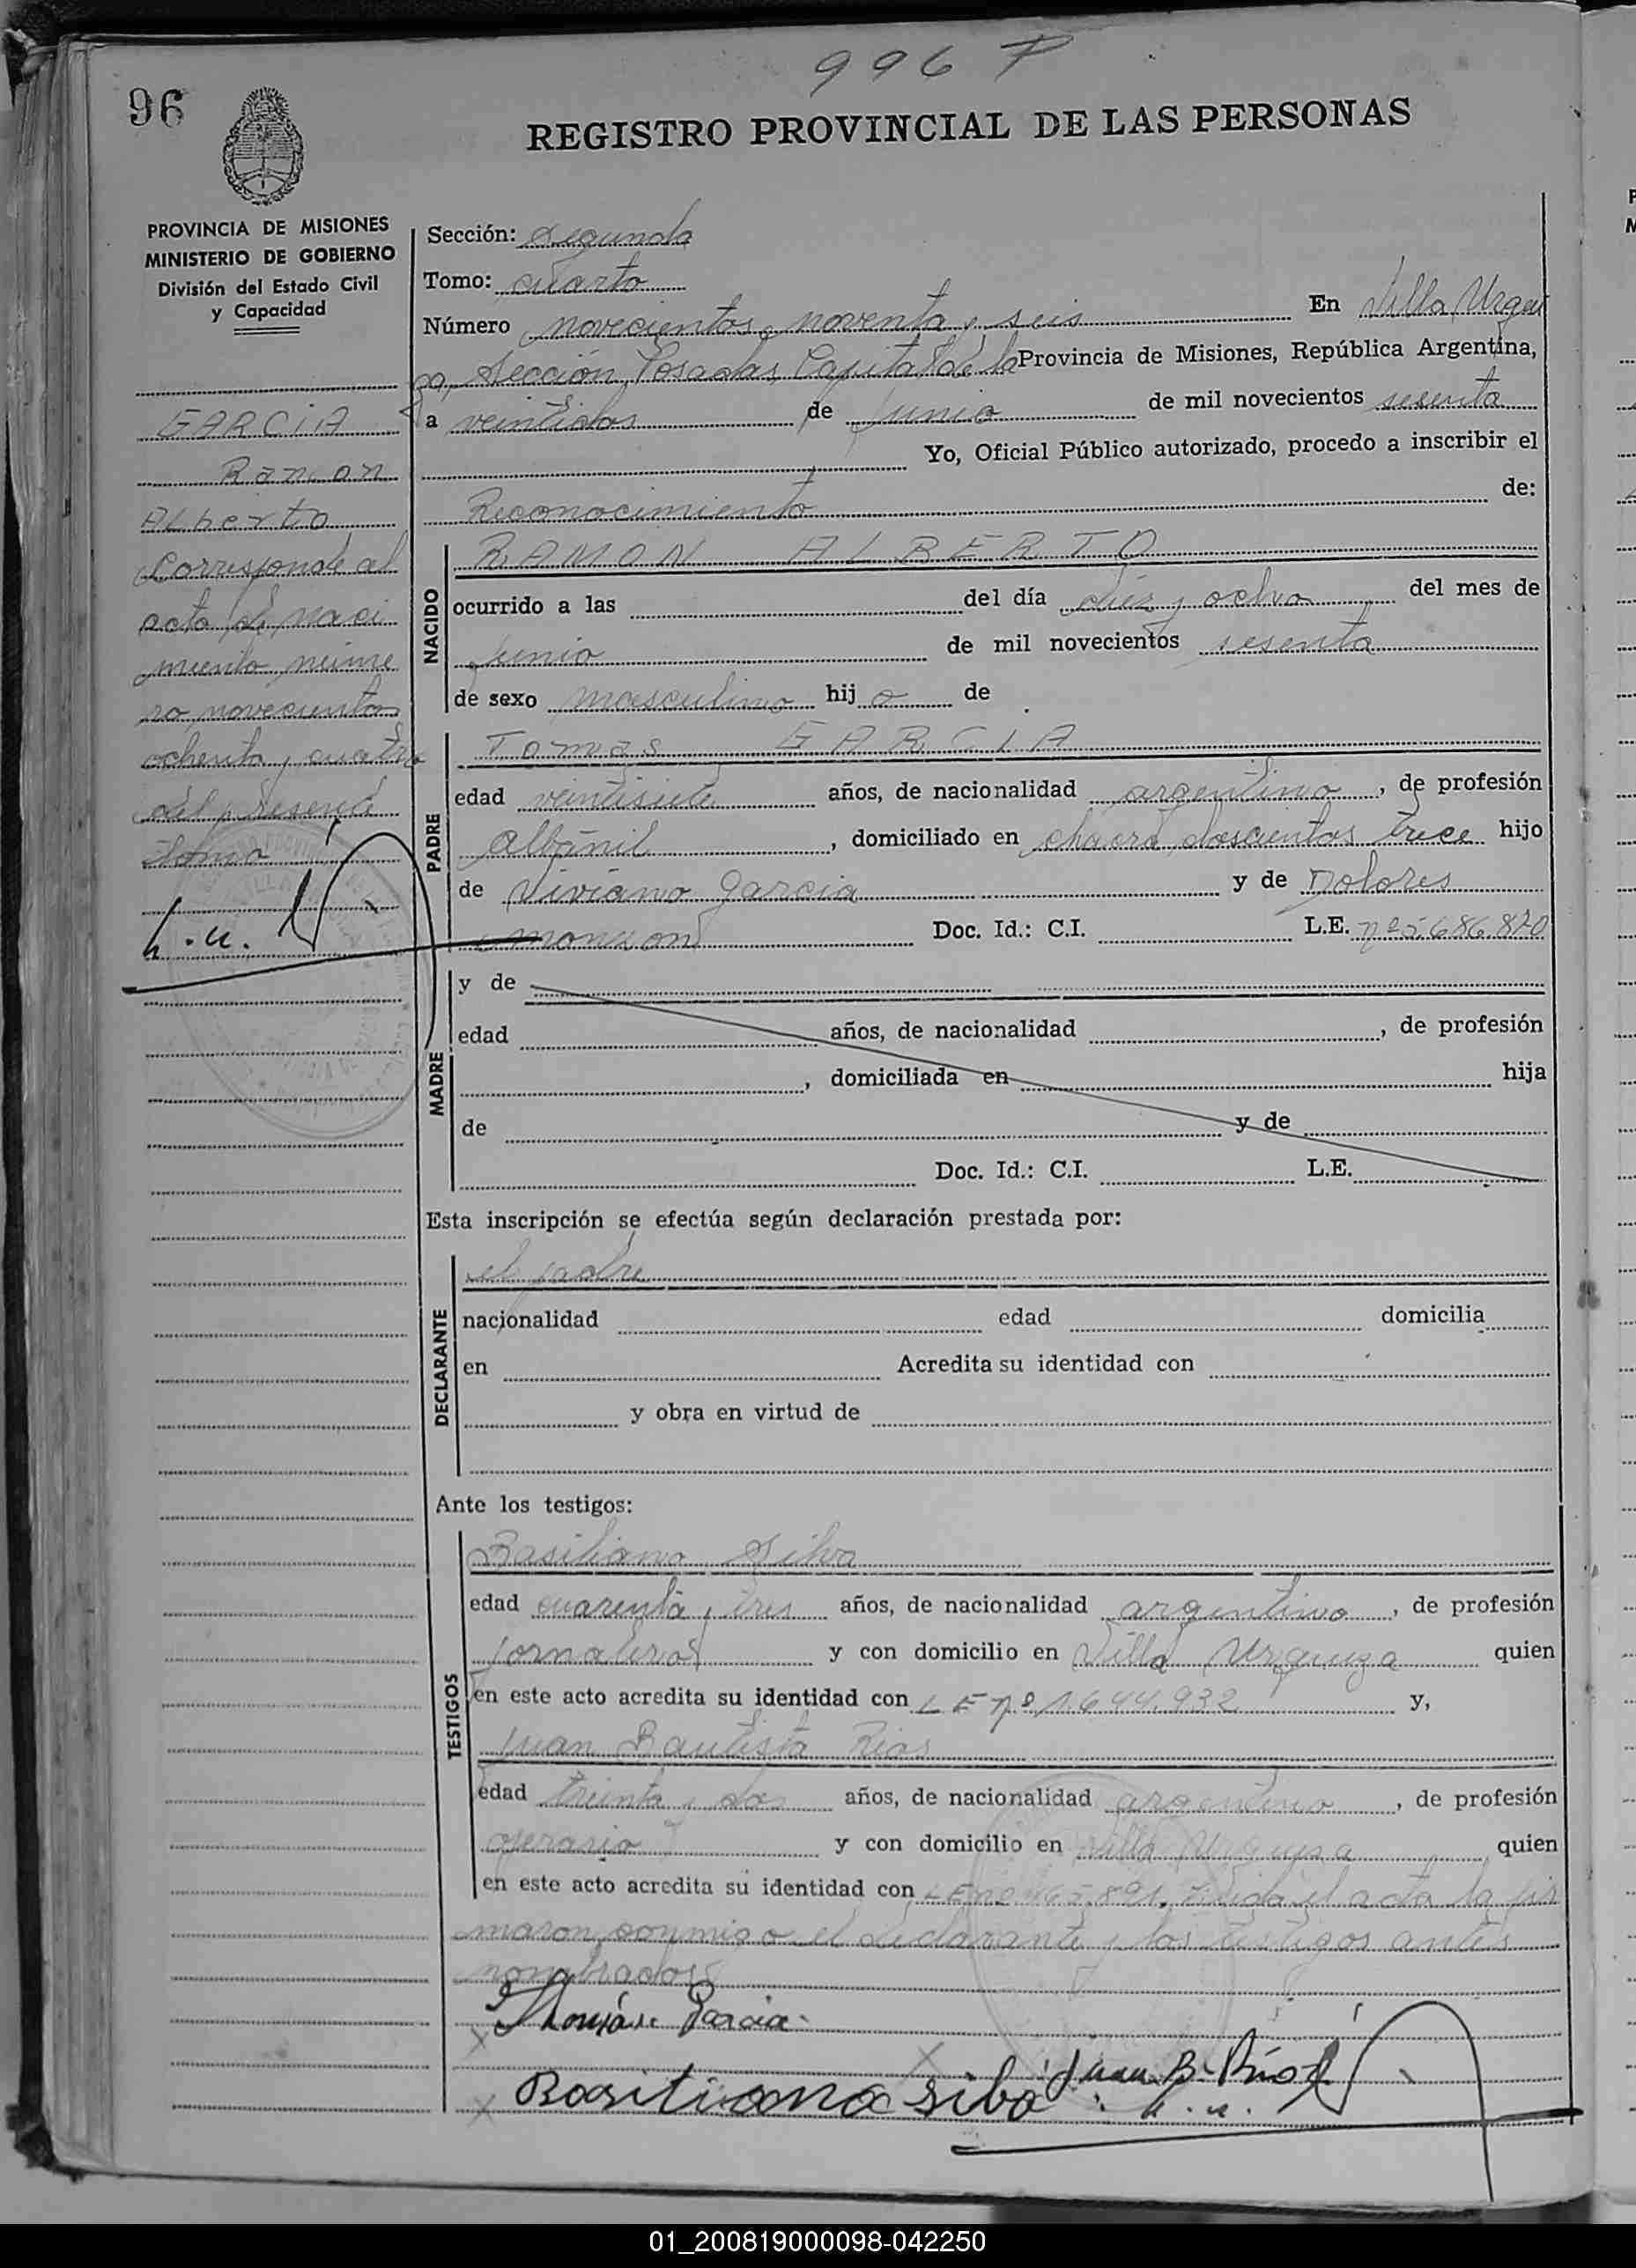 996 P
96
REGISTRO PROVINCIAL DE LAS PERSONAS
PROVINCIA DE MISIONES
MINISTERIO DE GOBIERNO
División del Estado Civil
y Capacidad
GARCIA
Ramon
ALberto
Corresponde al
acta de naci
miento núme
ro novecientos
ochenta y cuatro
del presente
tomo
Sección: Segunda
Tomo: cuarto
Número novecientos noventa y seis En Villa Urqui
za, Sección Posadas, Capital de la Provincia de Misiones, República Argentina,
a veintidos de junio de mil novecientos sesenta
Yo, Oficial Público autorizado, procedo a inscribir el
Reconocimiento de:
NACIDO
RAMON ALBERTO
ocurrido a las del día diez y ocho del mes de
junio de mil novecientos sesenta
de sexo masculino hij o de
PADRE
Tomas GARCIA
edad veintisiete años, de nacionalidad argentino, de profesión
albañil, domiciliado en chacra doscientos trece hijo
de Viviano Garcia y de Dolores
monzon Doc. Id.: C.I. L.E. nº 5.686.820
MADRE
y de
edad años, de nacionalidad , de profesión
, domiciliada en hija
de y de
Doc. Id.: C.I. L.E.
Esta inscripción se efectúa según declaración prestada por:
DECLARANTE
el padre
nacionalidad edad domicilia
en Acredita su identidad con
y obra en virtud de
Ante los testigos:
TESTIGOS
Basiliano Silva
edad cuarenta y tres años, de nacionalidad argentino, de profesión
jornalero y con domicilio en Villa Urquiza quien
en este acto acredita su identidad con L E nº 1.644.932 y,
Juan Bautista Rios
edad treinta y dos años, de nacionalidad argentino, de profesión
operario y con domicilio en Villa Urquiza quien
en este acto acredita su identidad con L E nº leida el acta la fir
maron conmigo el declarante y los testigos antes
nombrados
Garcia
Basiliano Silba Juan B. Rios
01_200819000098-042250